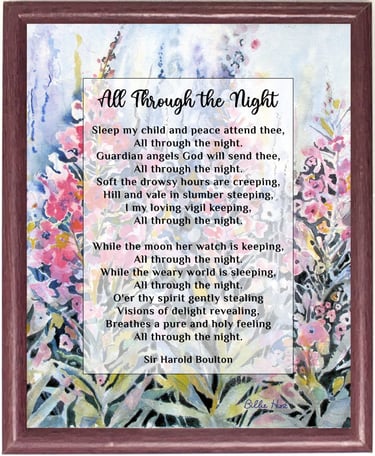 All Through the Night
Sleep my child and peace attend thee,
All through the night.
Guardian angels God will send thee,
All through the night.
Soft the drowsy hours are creeping,
Hill and vale in slumber steeping,
I my loving vigil keeping,
All through the night.
While the moon her watch is keeping,
All through the night.
While the weary world is sleeping,
All through the night.
O'er thy spirit gently stealing
Visions of delight revealing,
Breathes a pure and holy feeling
All through the night.
Sir Harold Boulton